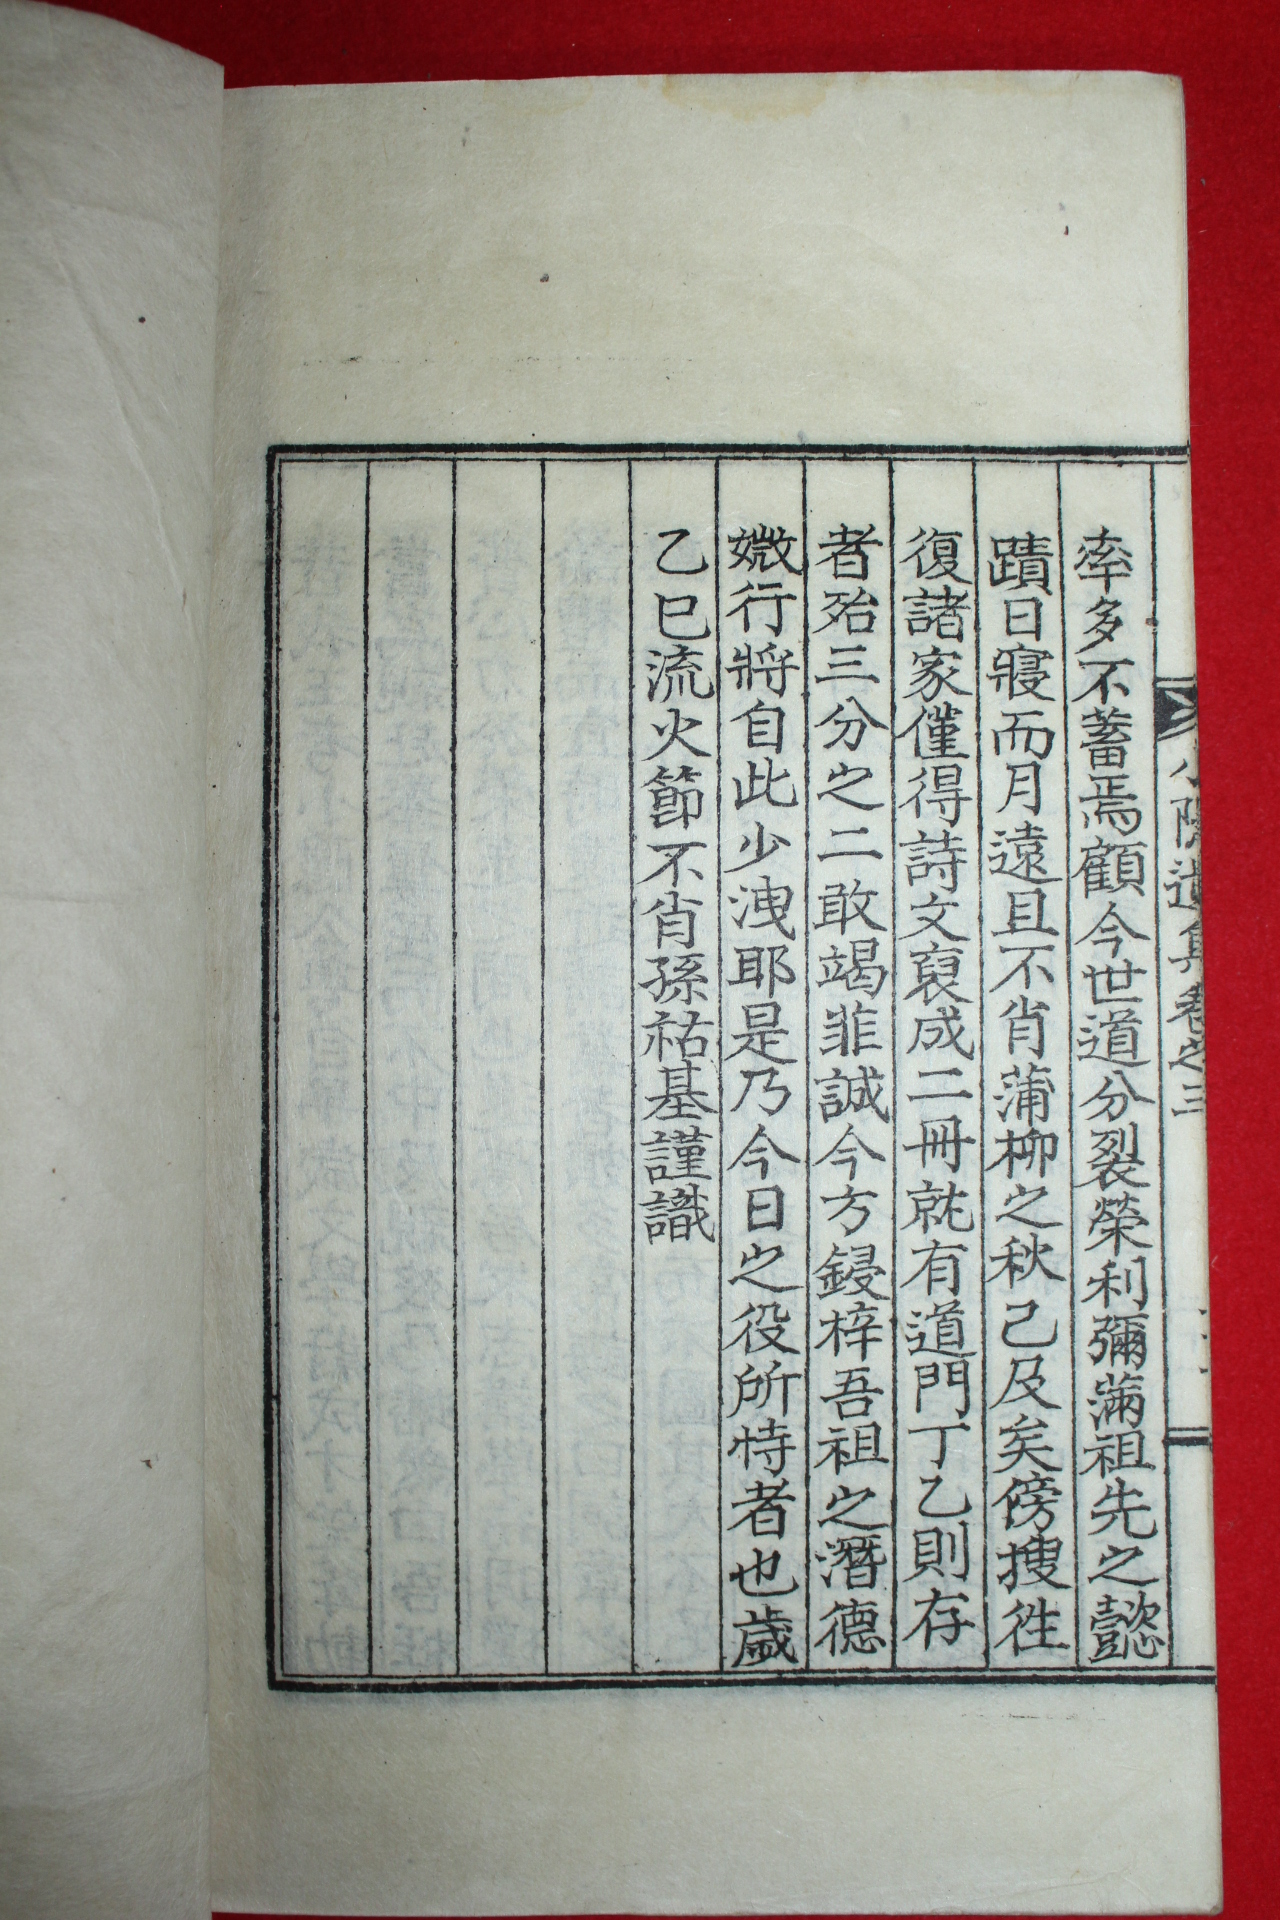 率多不蓄焉顧今世道分裂榮利彌滿祖先之懿
蹟日寢而月遠且不肖蒲柳之秋己及矣傍搜徃
復諸家僅得詩文裒成二冊就有道門丁乙則存
者殆三分之二敢竭菲誠今方鋟梓吾祖之潛德
媺行將自此少洩耶是乃今日之役所恃者也歲
乙巳流火節不肖孫祐基謹識
小隱遺集卷之三